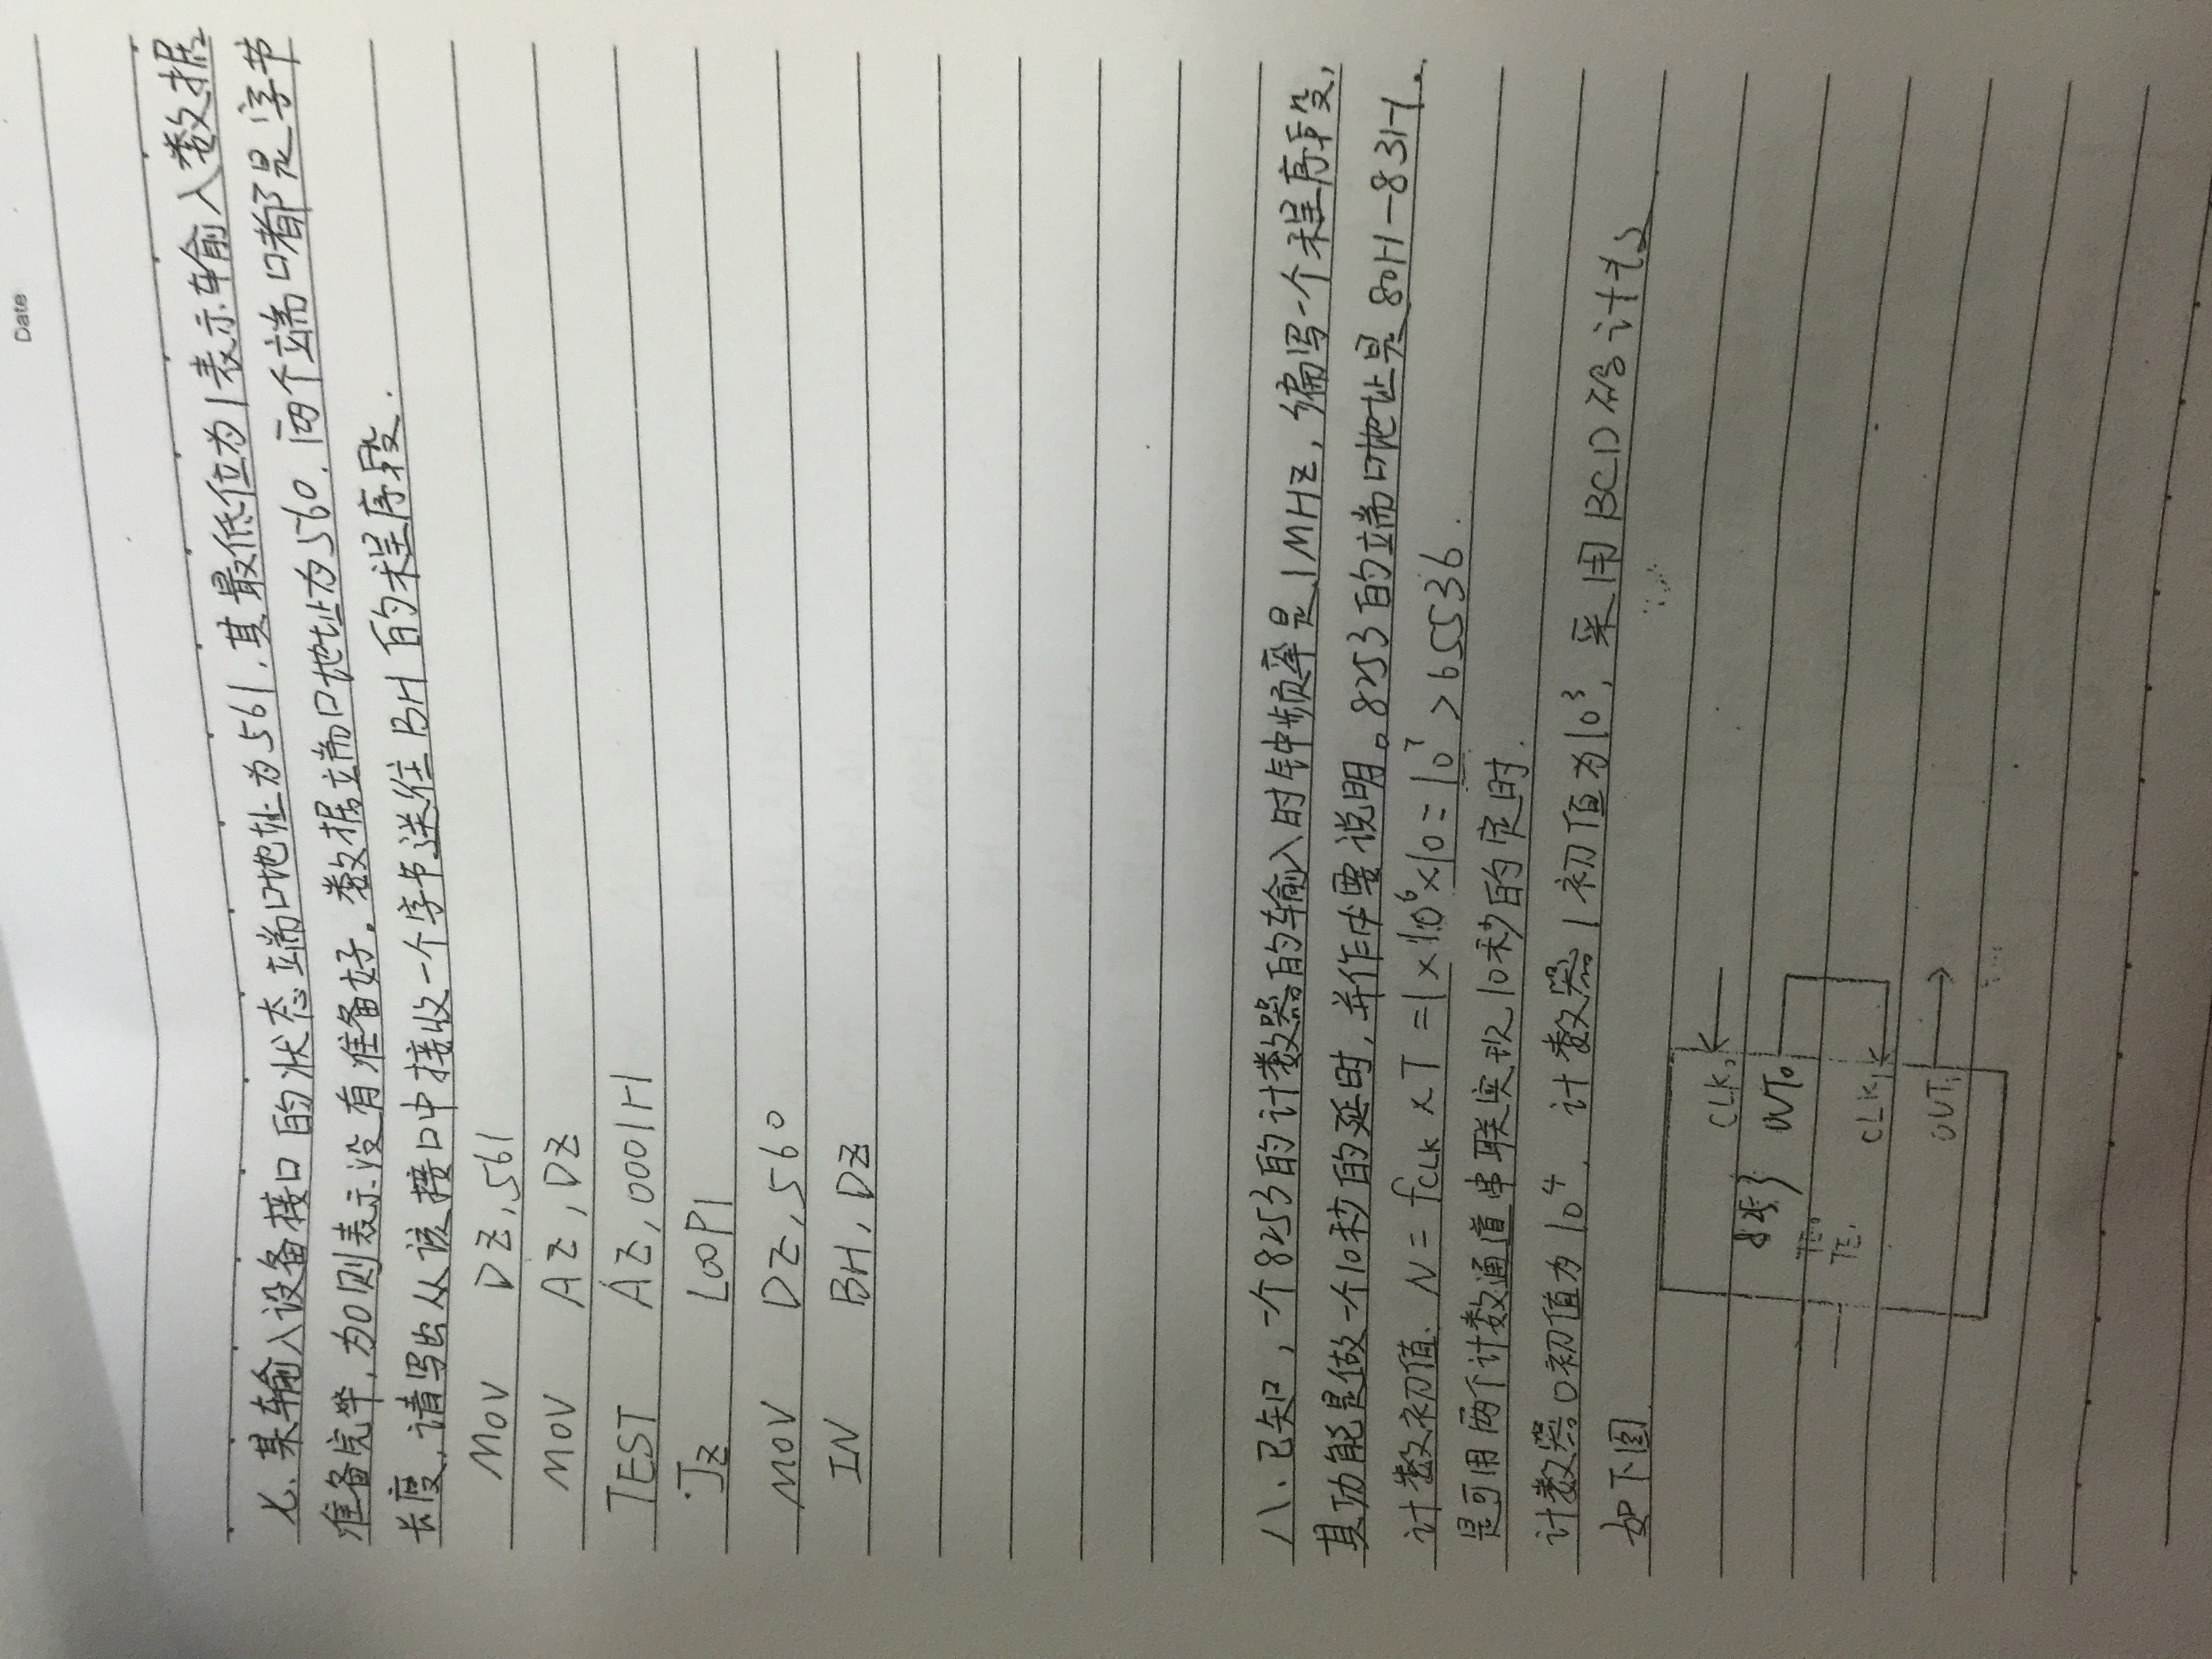 Date
七、某输入设备接口的状态端口地址为561,其最低位为1表示输入数据
准备完毕,为0则表示没有准备好。数据端口地址为560,两个端口都是字节
长度,请写出从该接口中接收一个字节送往BH的程序段.
MOV DZ,561
MOV AZ,DZ
TEST AZ,0001H
JZ LOOP1
MOV DZ,560
IN BH,DZ
八、已知,一个8253的计数器的输入时钟频率是1MHZ,编写一个程序段,
其功能是做一个10秒的延时,并作要说明。8253的端口地址是80H-83H。
计数初值. N=fCLK×T=1×10⁶×10=10⁷>65536.
是可用两个计数通道串联实现10秒的定时.
计数器0初值为10⁴, 计数器1初值为10³,采用BCD码计
如下图.
CLK₀
8253 OUT₀
TE₀
TE₁
CLK₁
OUT₁